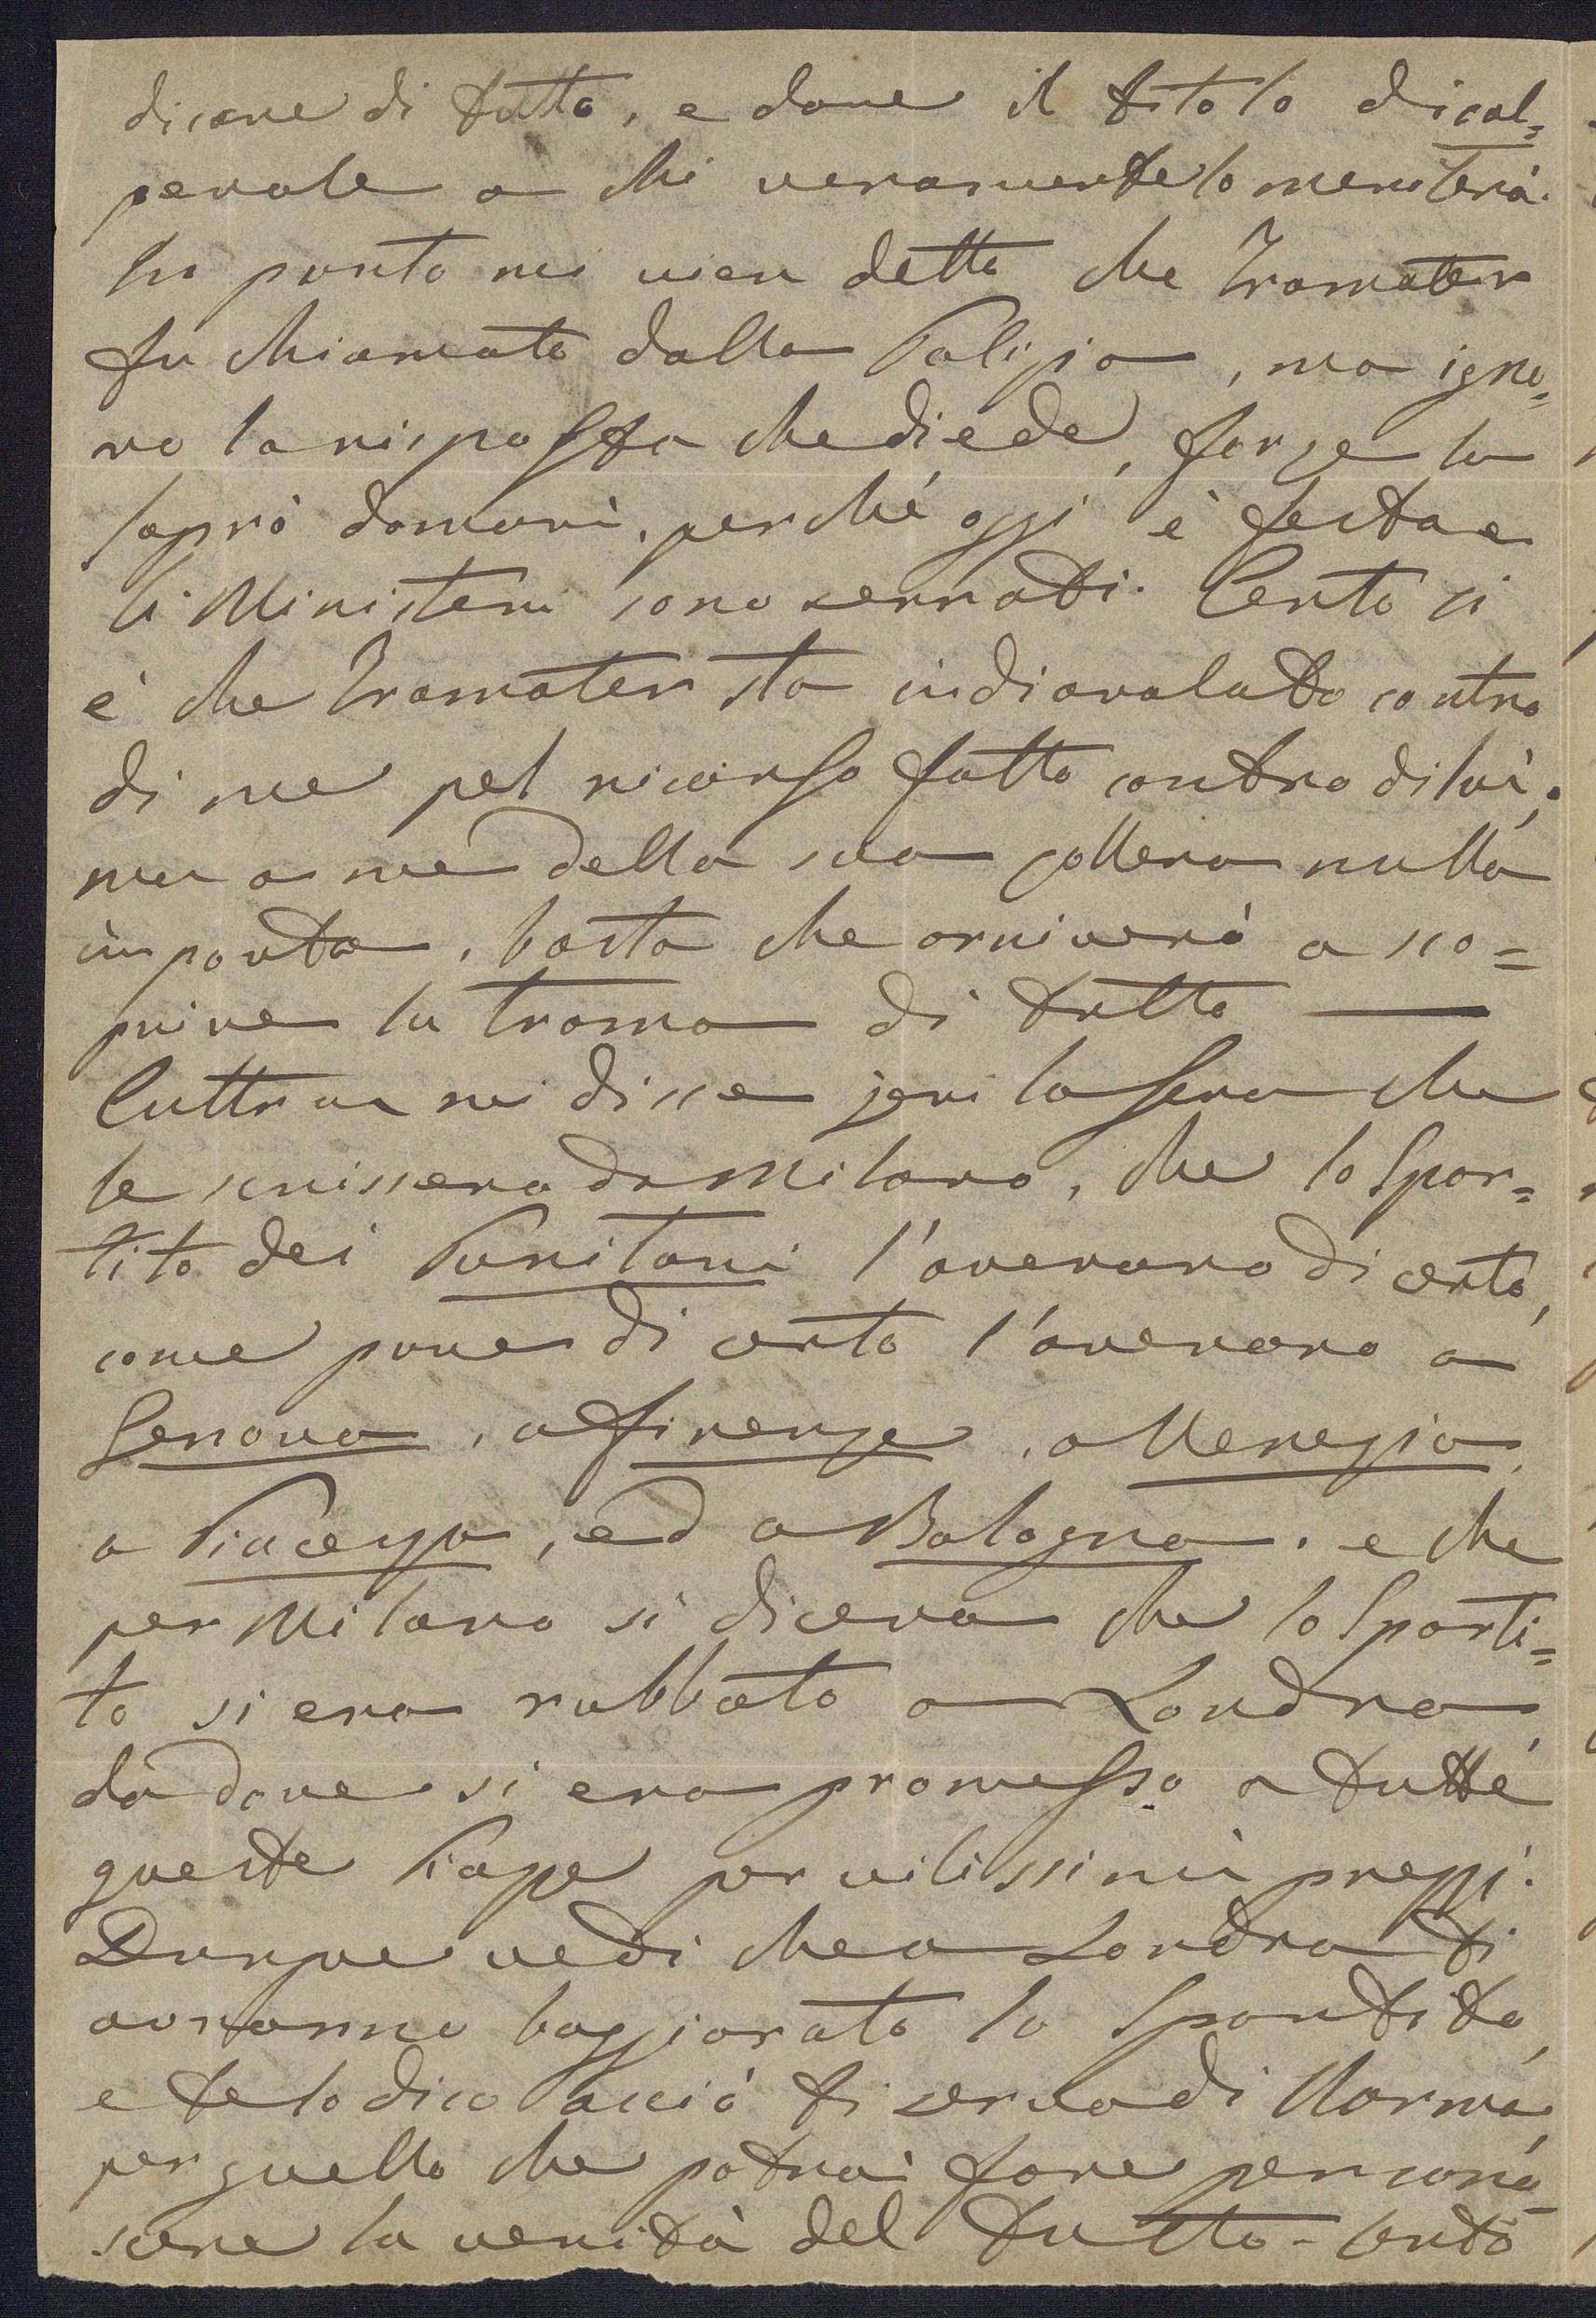 dicare di tutto, e dare il titolo di col=
pevole a chi veramente lo meriterà.
In punto mi vien detto che Tramater
fu chiamato dalla Polizia, ma igno=
ro la risposta che diede, forse la
saprò domani, perché oggi è festa e
li Ministeri sono serrati. Certo si
è che Tramater sta indiavolato contro
di me pel ricorso fatto contro di lui;
ma a me della sua collera nulla
importa, basta che arriverò a sco=
prire la trama di tutto —
Cuttrau mi disse jeri la sera che
le scrissero da Milano, che lo Spar=
tito dei Puritani l'averano di certo,
come pure di certo l'averano a
Genova, a Firenze, a Venezia,
a Piacenza, ed a Bologna. e che
per Milano si diceva che lo Sparti=
to si era rubbato a Londra,
da dove si era promesso a tutte
queste Piazze per vilissimi prezzi.
Dunque vedi che a Londra ti
avranno baggiarato lo Spartito,
e te lo dico acciò ti serva di Norma,
per quello che potrai fare per cono=
scere la verità del tutto - Certo